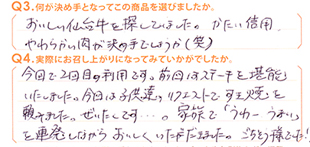 Q3.何が決め手となってこの商品を選びましたか。
おいしい仙台牛を探していました。かたい信用
やわらかい肉が決め手でしょうか(笑)
Q4.実際にお召し上がりになってみていかがでしたか。
今回で2回目の利用です。前回はステーキを堪能
いたしました。今回は子供達のリクエストですき焼を
頼みました。ぜいたくです…。家族で「うわーうまい」
を連発しながらおいしくいただきました。ごちそう様でした!